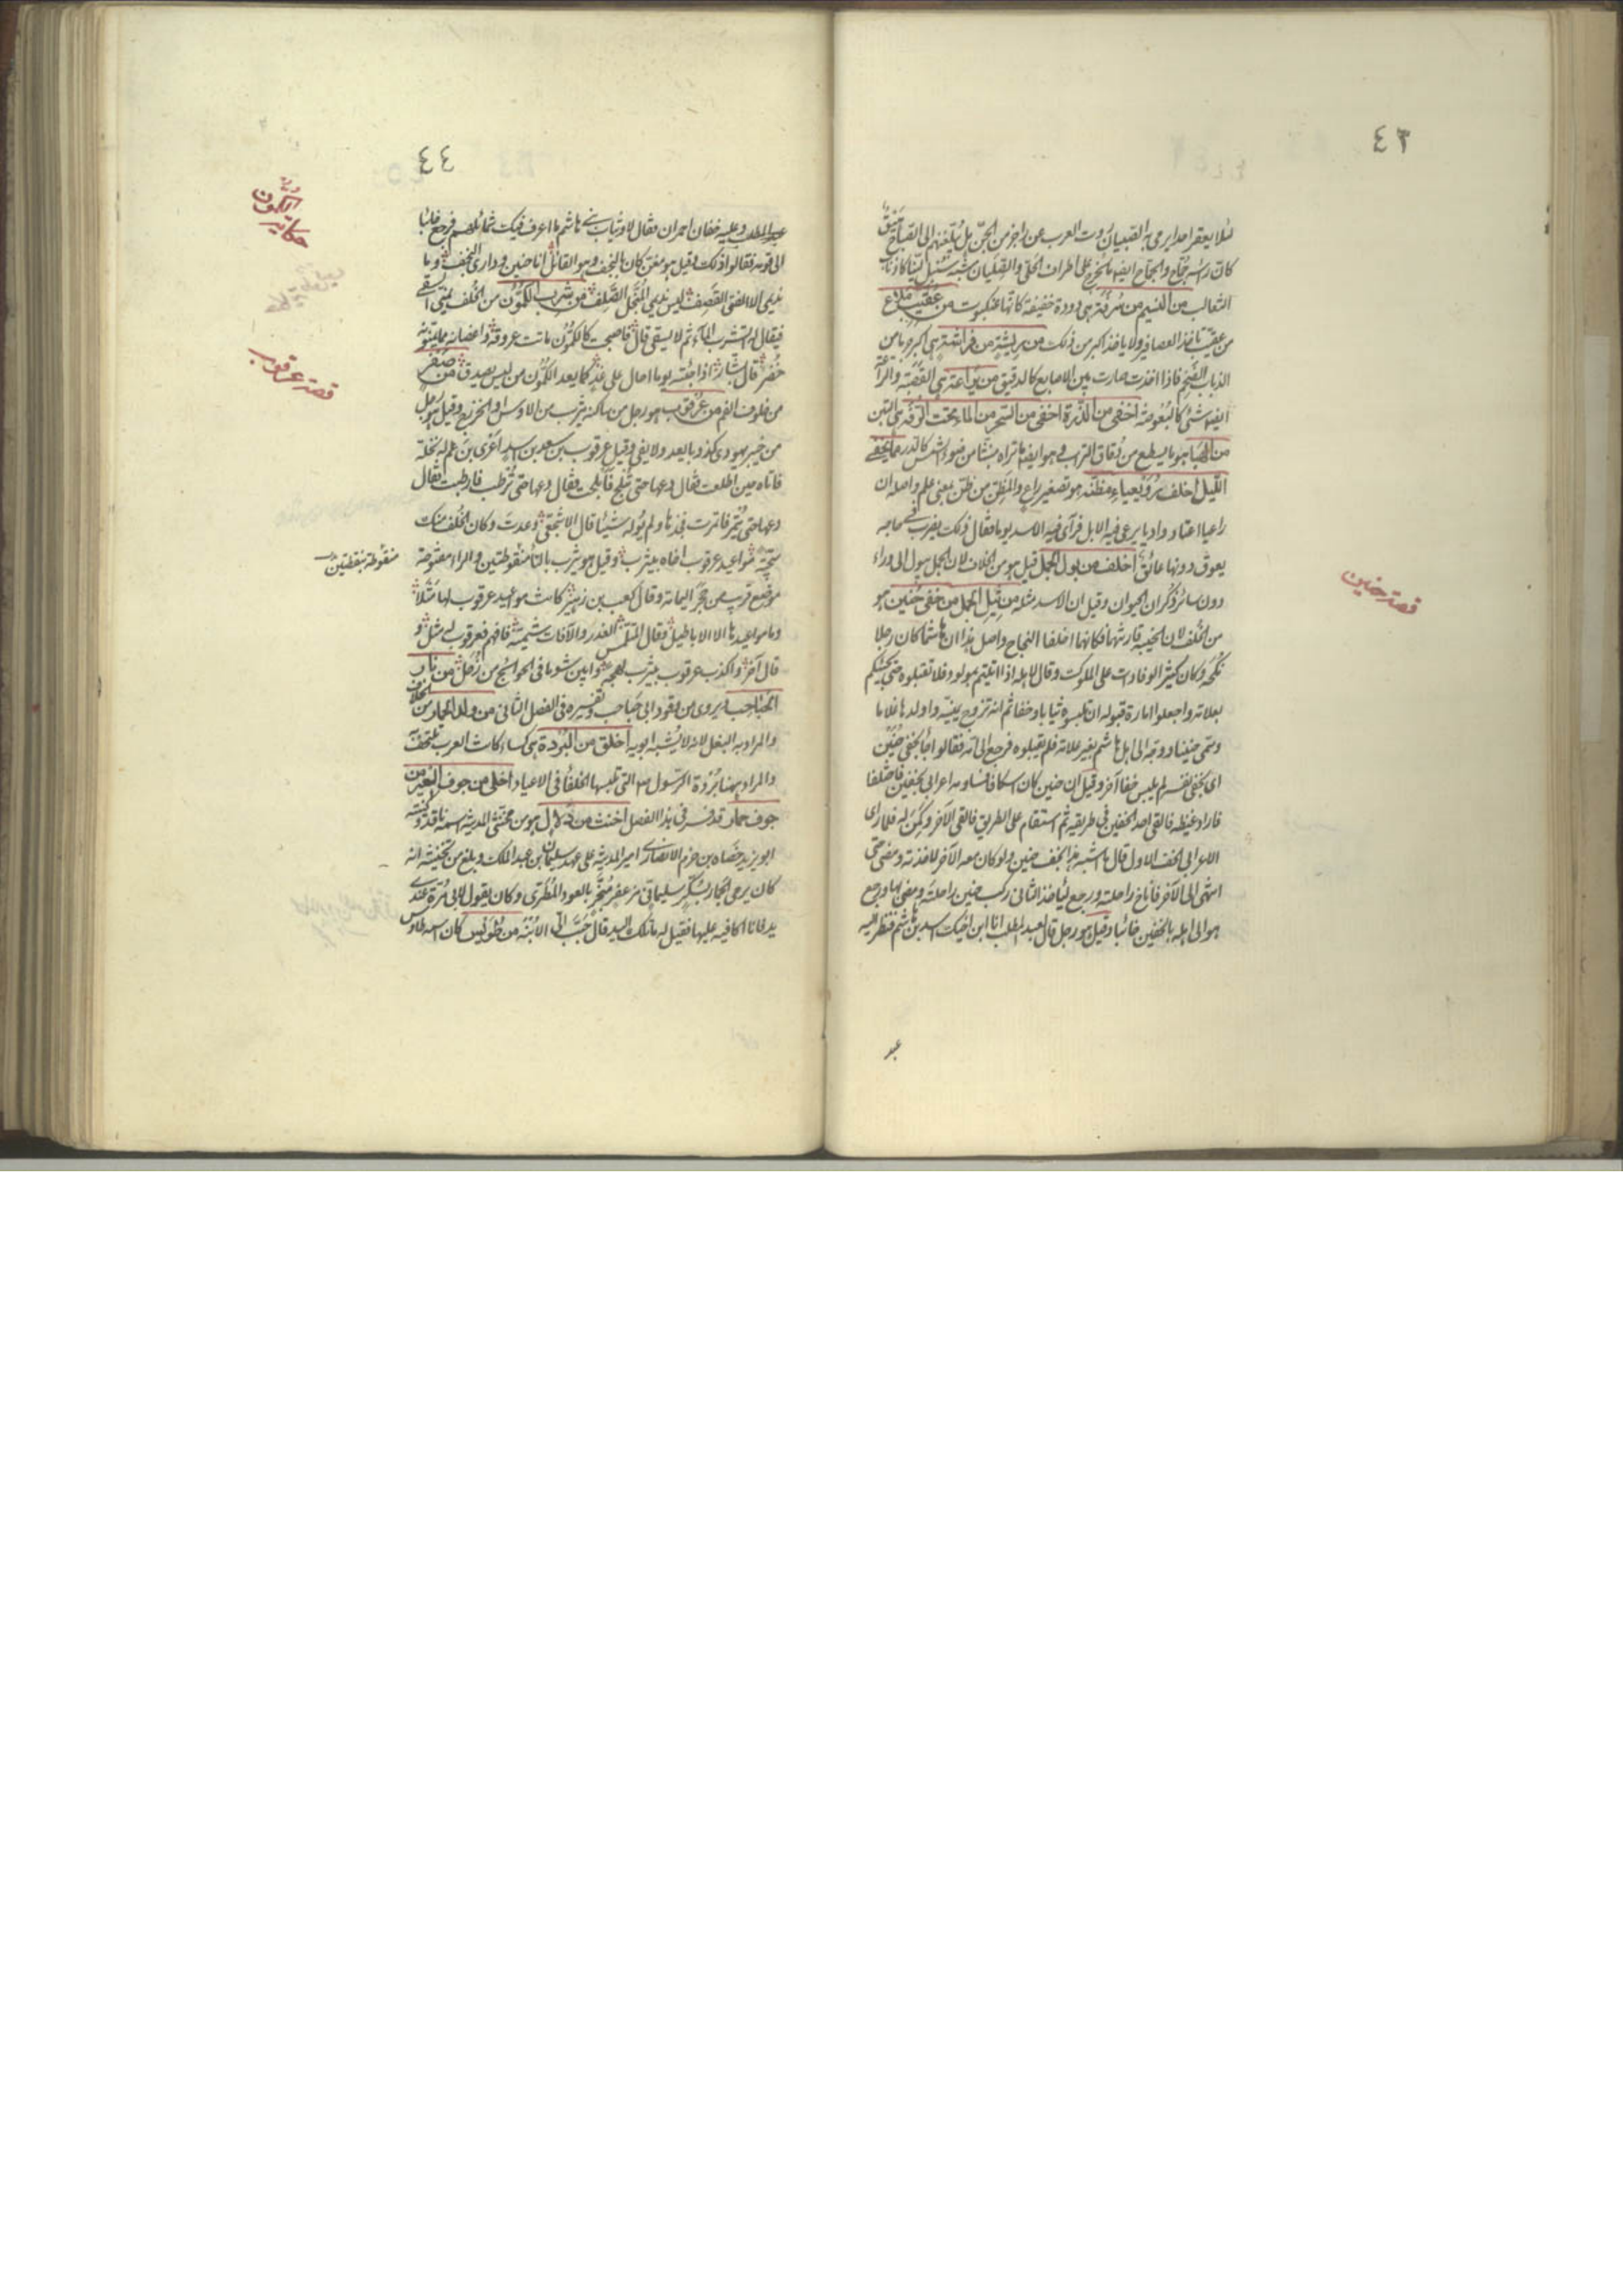 ٤٣
لئلا يعقر احدا يرمي به القبعيان روت العرب عن راجز من الجن بل بلغنهم الى القباح
كان راسه جماح والجماح ايضا يخرج على اطراف الحلي والصليان شبه سنبل لينا كاذناب
الثعالب من النسيم من سرفة هي دودة خفيفة كانها عنكبوت من عقيب ملاع
من عقيب ياخذ العصافير ولا ياخذ اكبر من ذلك من بريشة من فراشة هي اكبر ما من
الذباب الضخم فاذا اخذت صارت بين الاصابع كالدقيق من يراعة هي القصبة والبراعة
ايضا شئ كالبعوضة اخفى من الذرة اخفى من السحر من الماء تحت الرفة هي التبن
من الهباء هو ما يسطع من دقاق التراب وهو ايضا ما تراه منبثا من ضوء الشمس كالذر مما يخفي
الليل اخلف رويعيا مظنة هو تصغير راع والمظنة من ظن بمعنى علم واصله ان
راعيا اعتاد واديا يرعى فيه الابل فرأى فيه الاسد يوما فقال ذلك يضرب في حاجه
يعوق دونها عائق اخلف من بول الجمل قيل هو من الخلاف لان الجمل يبول الى وراء
دون سائر ذكران الحيوان وقيل ان الاسد مثله من ثيل الجمل من خفي حنين هو
من الخلف لان الخيبة قارنتهما فكانهما اخلفا النجاح واصل هذا ان هاشما كان رجلا
نكحة وكان كثير الوفادات على الملوك وقال لاهله اذا اتيتم بمولود فلا تقبلوه حتى يجيئكم
بعلامة واجعلوا امارة قبوله ان تلبسوه ثيابا وخفا ثم انه تزوج يمنية واولدها غلاما
وسمي حنينا ووجه الى اهل هاشم بغير علامة فلم يقبلوه فرجع الى امه فقالوا جاء بخفي حنين
اي بخفي نفسه لم يلبس خفا آخر وقيل ان حنين كان اسكافا فساومه اعرابي بخفين فاختلفا
فاراد غيظه فالقى احد الخفين في طريقه ثم استقام على الطريق فالقى الآخر وكمن له فلما رأى
الاعرابي الخف الاول قال ما اشبه هذا بخف حنين ولو كان معه الآخر لاخذته ومضى حتى
انتهى الى الآخر فاناخ راحلته ورجع لياخذ الثاني ركب حنين راحلته ومضى بها ورجع
هو الى اهله بالخفين خائبا وقيل هو رجل قال لعبد المطلب انا ابن اخيك اسد بن هاشم فنظر اليه
عبد
قصة حنين
٤٤
عبد المطلب وعليه خفان احمران فقال لا وثياب بني هاشم ما اعرف فيك شمائلهم فرجع خائبا
الى قومه فقالوا ذلك وقيل هو مغن كان بالنجف وهو القائل انا حنين وداري النجف وما
نديمي الا الفتى القصف ليس نديمي المبخل الصلف من شرب الكمون من الخلف يمنى السقي
فيقال له اتشرب الماء ثم لا يسقى قال فاصبحت كالكمون ماتت عروقه واغصانه مما يمنونه
خضر قال بشار اذا جئته يوما احال على غد كما يعد الكمون من ليس يصدق من صقر
من خلوف الفم من عرقوب هو رجل من ساكنة يثرب من الاوس او الخزرج وقيل هو رجل
من خيبر يهودي كذوب ما يعد ولا يفي وقيل عرقوب بن سعد بن اسد اعرى بن عم له نخلة
فاتاه حين اطلعت فقال دعها حتى تبلح فابلحت فقال دعها حتى ترطب فارطبت فقال
دعها حتى تتمر فاتمرت فجذها ولم يوله شيئا قال الاشجعي وعدت وكان الخلف منك
سجية مواعيد عرقوب اخاه بيثرب وقيل هو يترب بالتاء منقوطتين والراء مفتوحة
موضع قريب من حجر اليمامة وقال كعب بن زهير كانت مواعيد عرقوب لها مثلا
وما مواعيدها الا الاباطيل فقال المتلمس الغدر والآفات شيمته فافهم فعرقوب له مثل و
قال آخر واكذب عرقوب بيثرب لهجة وابين شوما في الحوائج من زحل من نار
الحباحب ويروى من وقود ابي حباحب وتفسيره في الفصل الثاني من ولد الحمار من الخلاف
والمراد به البغل لانه لا يشبه ابويه اخلق من البردة هي كساء كانت العرب تلتحف
والمراد بهذا بردة الرسول صم التي تلبسها الخلفاء في الاعياد اخلى من جوف العير من
جوف حمار قد فسر في هذا الفصل اخنث من دلال هو من مخنثي المدينة اسمه ناقد وكنيته
ابو يزيد خصاه بن حزم الانصاري امير المدينة على عهد سليمان بن عبد الملك وبلغ من تخنيثه انه
كان يرمي الجمار بسكر سليماني مزعفر مبخر بالعود المطرى وكان يقول لابي مرة عندي
يد فانا اكافيه عليها فقيل له ما تلك اليد قال حبب الي الابنة من طويس كان اسمه طاوس
حكاية الكمون
قصة عرقوب
منقوطه بنقطتين